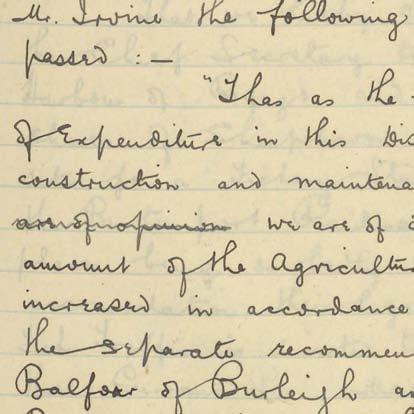 Mr. Irvine the following
passed :—
"Thas as the
of Expenditure in this Dis
construction and maintena
are of opinion we are of o
amount of the Agricultu
increased in accordance
the separate recommen
Balfour of Burleigh a